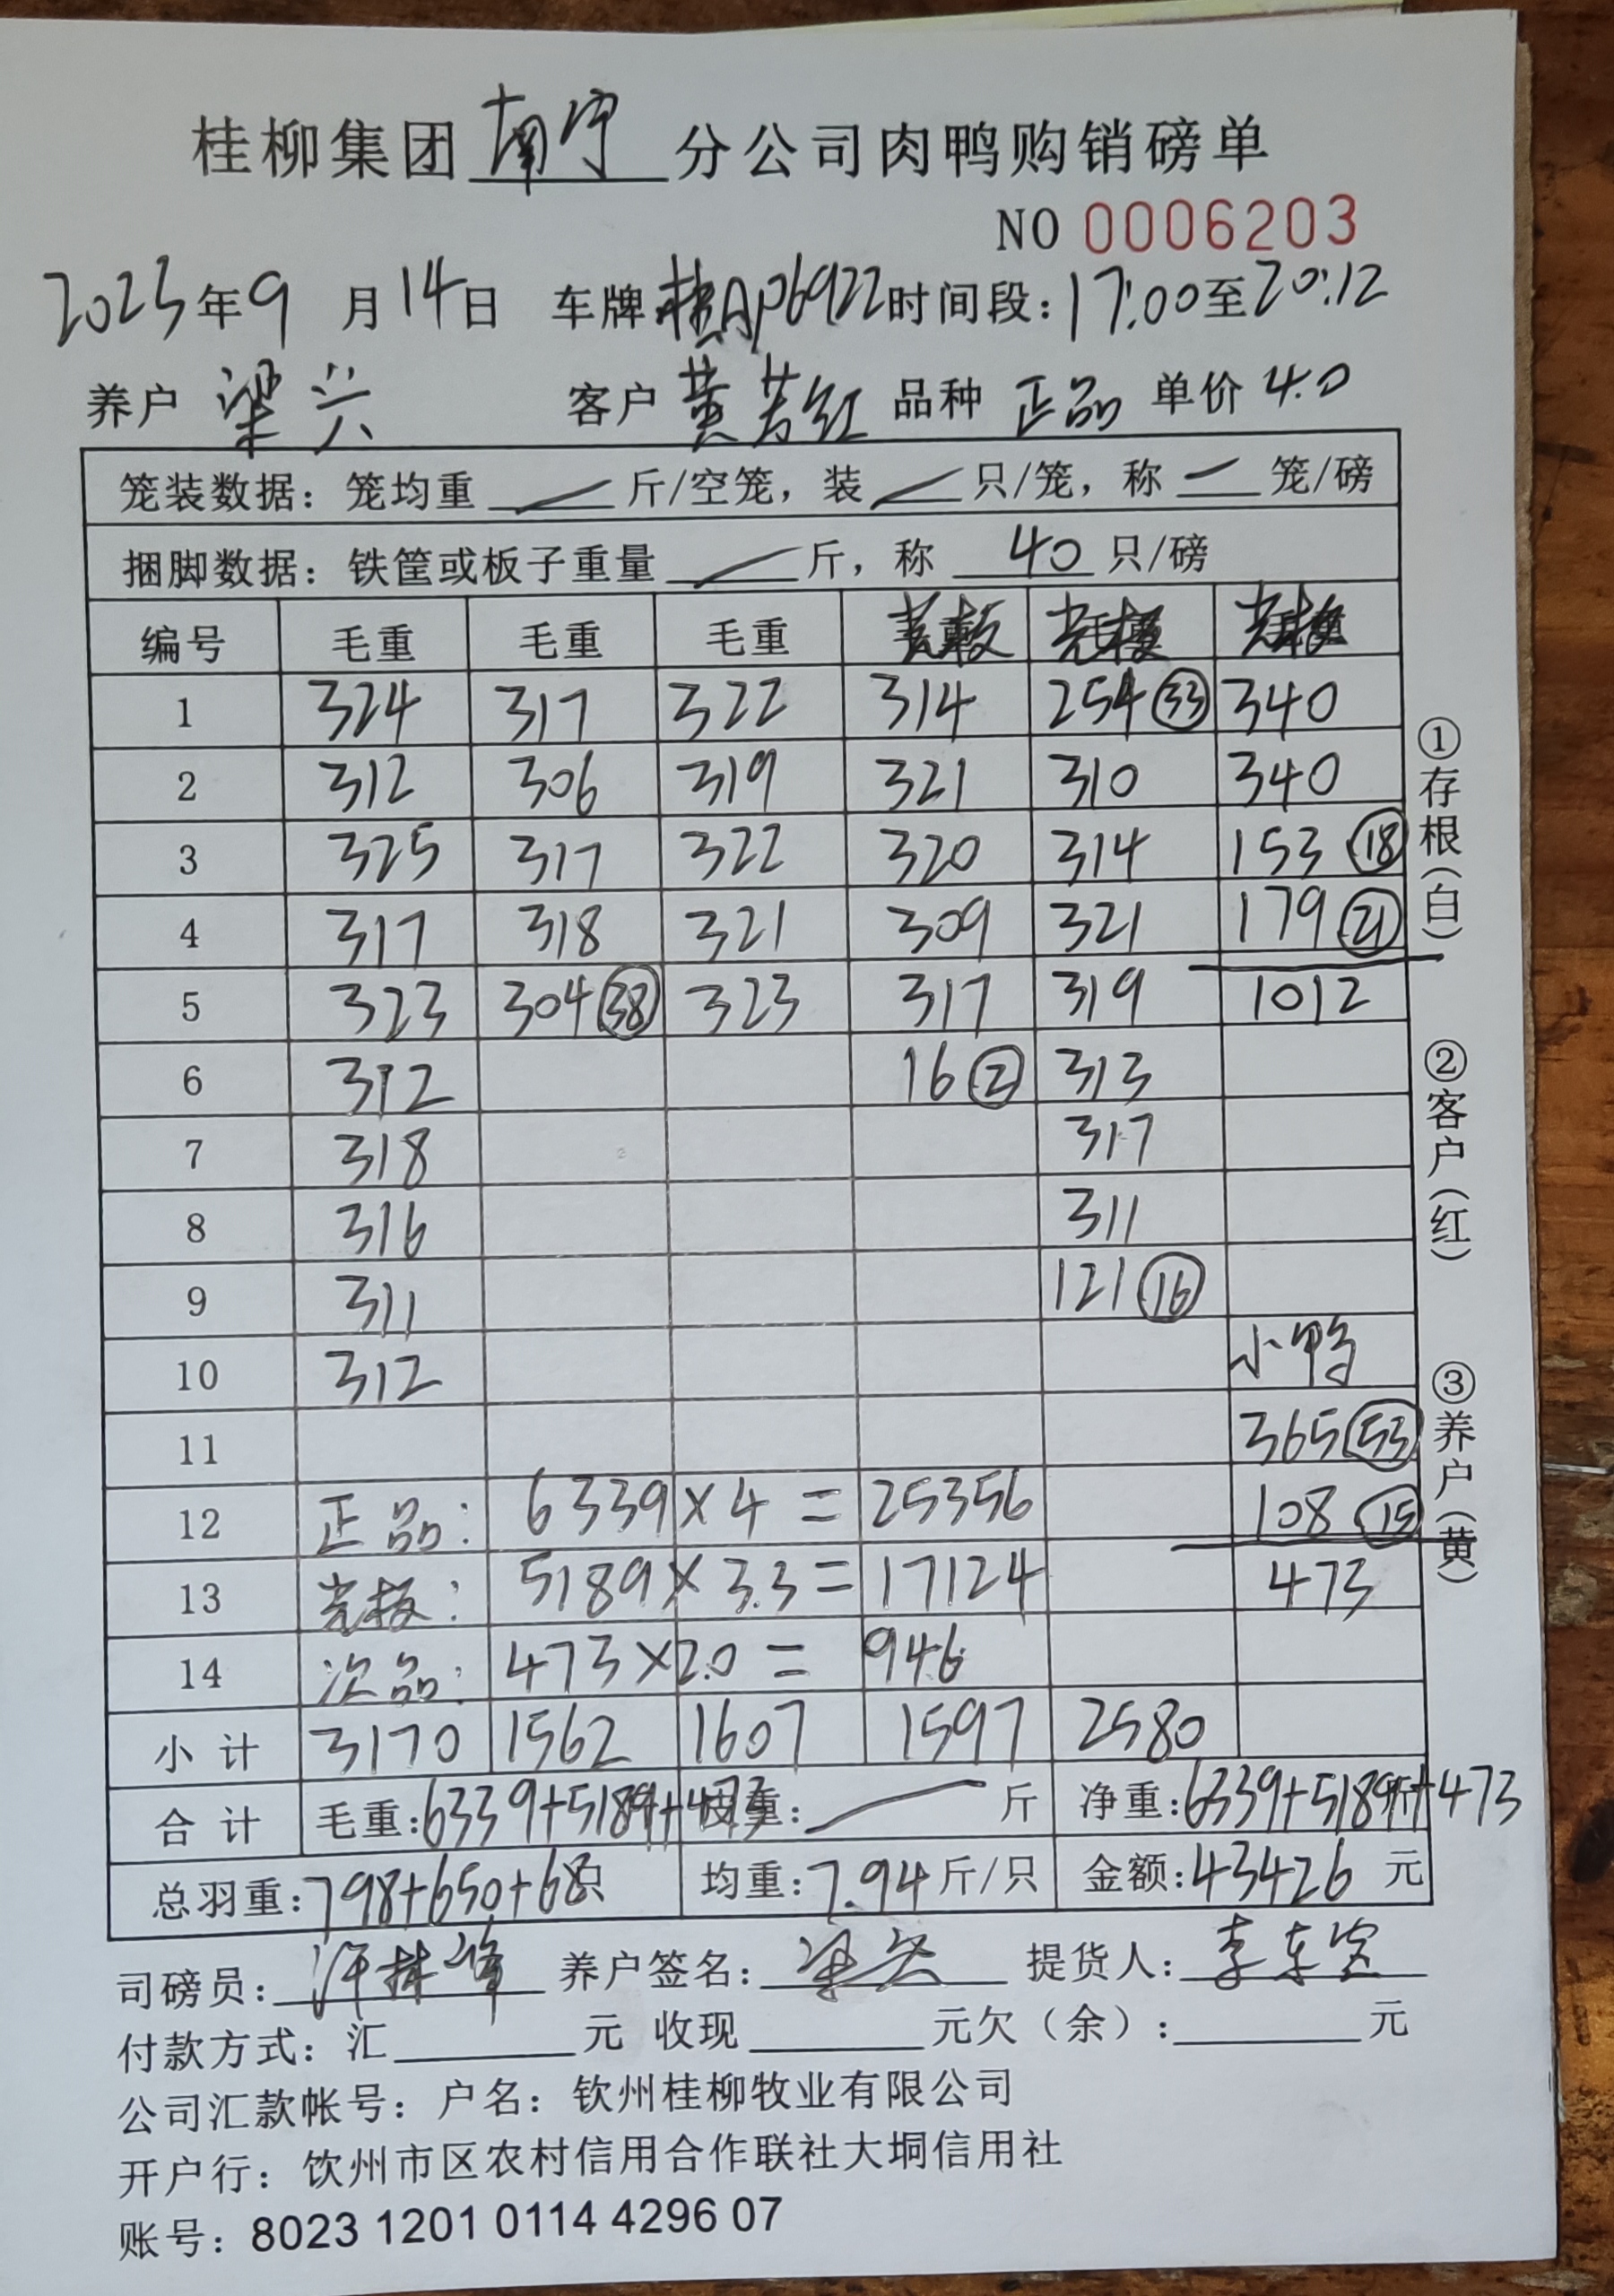 桂柳集团 南宁 分公司肉鸭购销磅单
NO 0006203
2023年9月14日 车牌 桂AP6922 时间段：17:00至20:12
养户 梁兴 客户 黄芳红 品种 正品 单价 4.0
笼装数据：笼均重 — 斤/空笼，装 — 只/笼，称 — 笼/磅
捆脚数据：铁筐或板子重量 — 斤，称 40 只/磅
编号 毛重 毛重 毛重 光板 光板 光板
1 324 317 322 314 254 33 340
2 312 306 319 321 310 340
3 325 317 322 320 314 153 18
4 317 318 321 309 321 179 21
5 323 304 38 323 317 319 1012
6 312 16 2 313
7 318 317
8 316 311
9 311 121 16
10 312 小鸭
11 365 53
12 正品： 6339×4＝25356 108 15
13 光板： 5189×3.3＝17124 473
14 次品： 473×2.0＝946
小计 3170 1562 1607 1597 2580
合计 毛重：6339+5189+473 皮重： — 斤 净重：6339+5189斤+473
总羽重：798+650+68只 均重：7.94斤/只 金额：43426 元
司磅员： 养户签名：梁兴 提货人：李东
付款方式：汇 元 收现 元欠（余）： 元
公司汇款帐号：户名：钦州桂柳牧业有限公司
开户行：钦州市区农村信用合作联社大垌信用社
账号：8023 1201 0114 4296 07
①存根（白）
②客户（红）
③养户（黄）